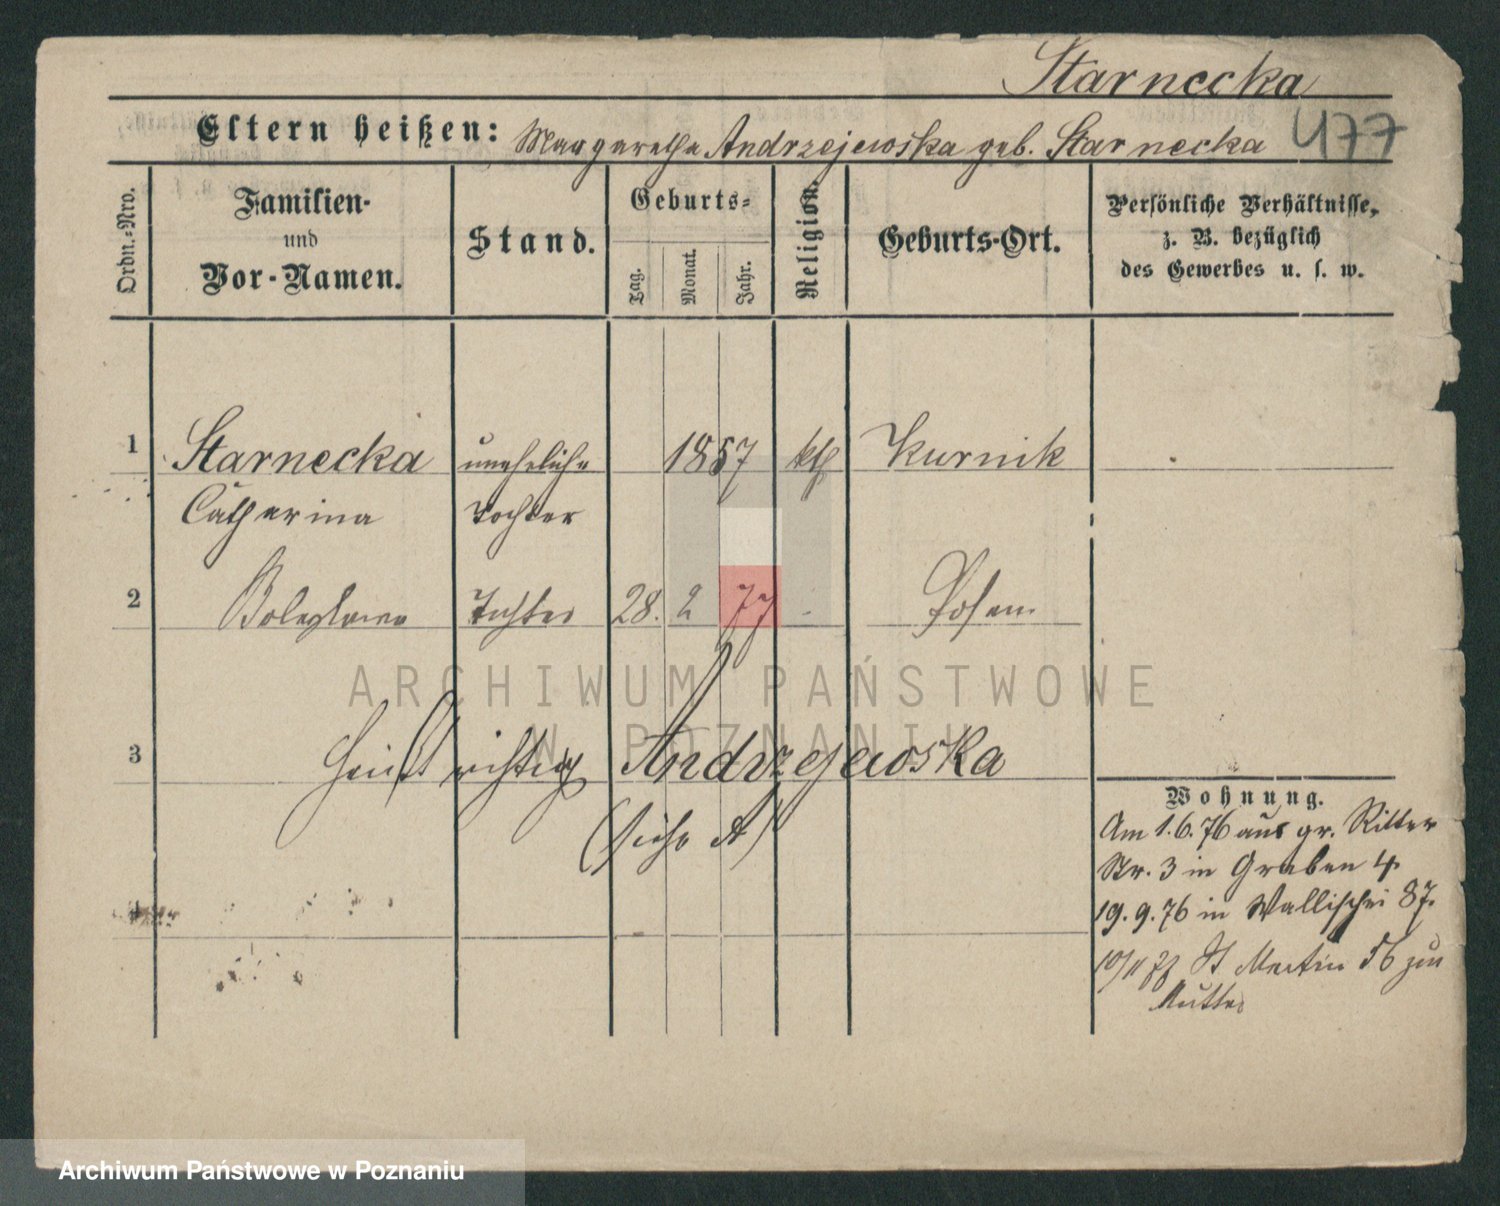 Starnecka
Eltern heißen: Margarethe Andrzejewska geb. Starnecka 477
Ordn.-Nro. Familien- und Vor-Namen. Stand. Geburts- Tag. Monat. Jahr. Religion. Geburts-Ort. Persönliche Verhältnisse, z. B. bezüglich des Gewerbes u. s. w.
1 Starnecka uneheliche 1857 kth Kurnik
Catharina Tochter
2 Boleslawa Tochter 28. 2 77 Posen
ARCHIWUM PAŃSTWOWE
W POZNANIU
3 heißt richtig Andrzejewska
(siehe A)
Wohnung.
Am 1.6.76 aus gr. Ritter
Str. 3 in Graben 4.
19.9.76 in Wallischei 87.
10/11 77 St Martin 56 zur
Mutter
4
Archiwum Państwowe w Poznaniu